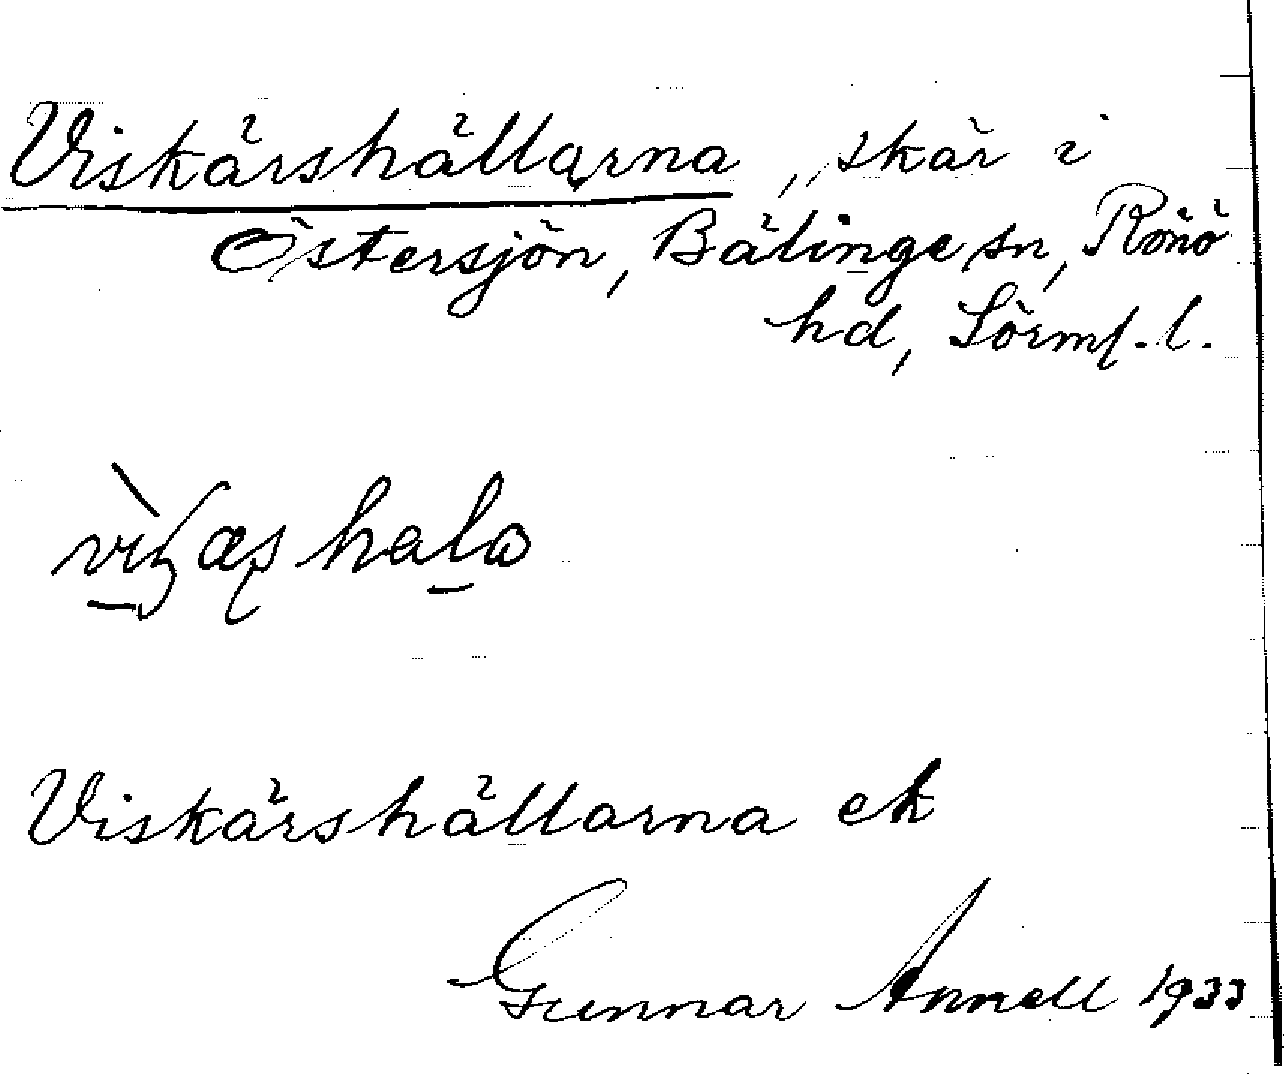 Viskärshällarna, skär i
Östersjön, Bälinge sn, Rönö
hd, Sörml. l.
Viskärshällarna ek
Gunnar Annell 1933